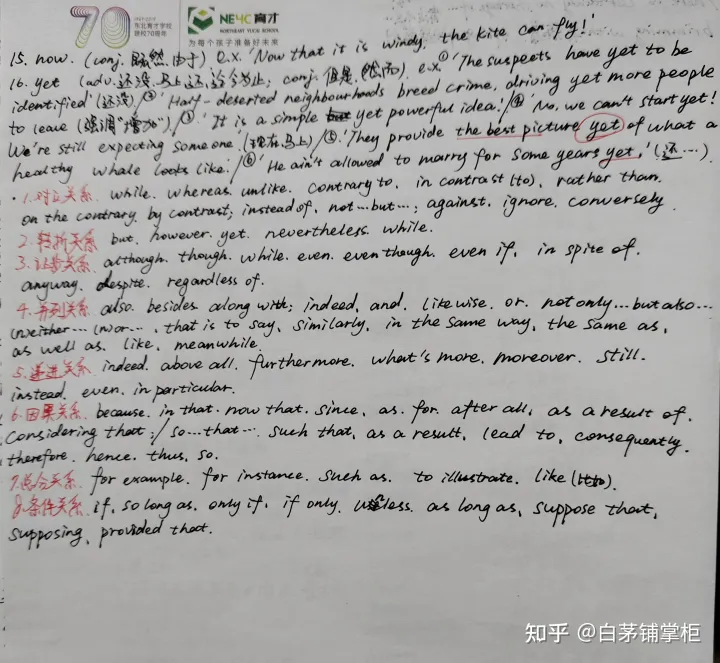 1949-2019
70
东北育才学校
建校70周年
NEYC 育才
NORTHEAST YUCAI SCHOOL
为每个孩子准备好未来
15. now. (conj. 既然,由于) e.x. 'Now that it is windy, the kite can fly!'
16. yet (adv. 还没,马上,还,迄今为止; conj. 但是,然而). e.x. ①'The suspects have yet to be
identified' (还没) ②'Half-deserted neighbourhoods breed crime, driving yet more people
to leave (强调"增加")/③'It is a simple yet powerful idea'/④'No, we can't start yet!
We're still expecting someone.' (现在,马上)/⑤'They provide the best picture yet of what a
healthy whale looks like.'/⑥'He ain't allowed to marry for some years yet.' (还…)
1.对立关系. while. whereas. unlike. contrary to. in contrast (to). rather than.
on the contrary. by contrast; instead of. not...but...; against. ignore. conversely.
2. 转折关系. but. however. yet. nevertheless. while.
3. 让步关系. although. though. while. even. even though. even if. in spite of.
anyway. despite. regardless of.
4. 并列关系. also. besides. along with; indeed. and. likewise. or. not only...but also...
(n)either...(n)or..., that is to say, similarly, in the same way, the same as,
as well as. like. meanwhile.
5. 递进关系. indeed. above all. furthermore. what's more. moreover. still.
instead. even. in particular.
6. 因果关系. because. in that. now that. since. as. for. after all, as a result of.
Considering that;/so...that... such that, as a result, lead to, consequently.
therefore. hence. thus. so.
7. 关系. for example. for instance. such as. to illustrate. like
8. 条件关系. if. so long as. only if. if only. unless. as long as, suppose that,
supposing, provided that.
知乎 @白茅铺掌柜